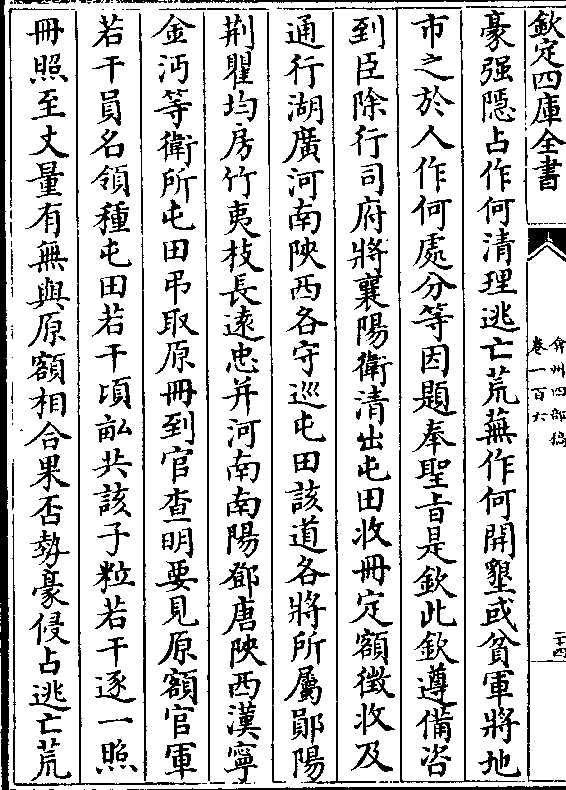 欽定四庫全書
弇州四部稿
卷一百六
二十四
豪强隱占作何清理逃亡荒蕪作何開墾或貧軍將地
市之於人作何處分等因題奉聖旨是欽此欽遵備咨
到臣除行司府將襄陽衛清出屯田收冊定額徵收及
通行湖廣河南陜西各守巡屯田該道各將所屬鄖陽
荆瞿均房竹夷枝長逺忠并河南南陽鄧唐陜西漢寧
金沔等衛所屯田弔取原冊到官查明要見原額官軍
若干員名領種屯田若干頃畝共該子粒若干逐一照
冊照至丈量有無與原額相合果否勢豪侵占逃亡荒